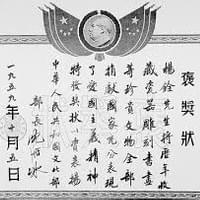 褒獎狀
楊銓先生將歷年收
藏瓷器雕刻書畫
等珍貴文物全部
捐獻國家充分表現
了愛國主義精神
特發獎狀以資表揚
中華人民共和國文化部
部長沈雁冰
一九五九年十月五日